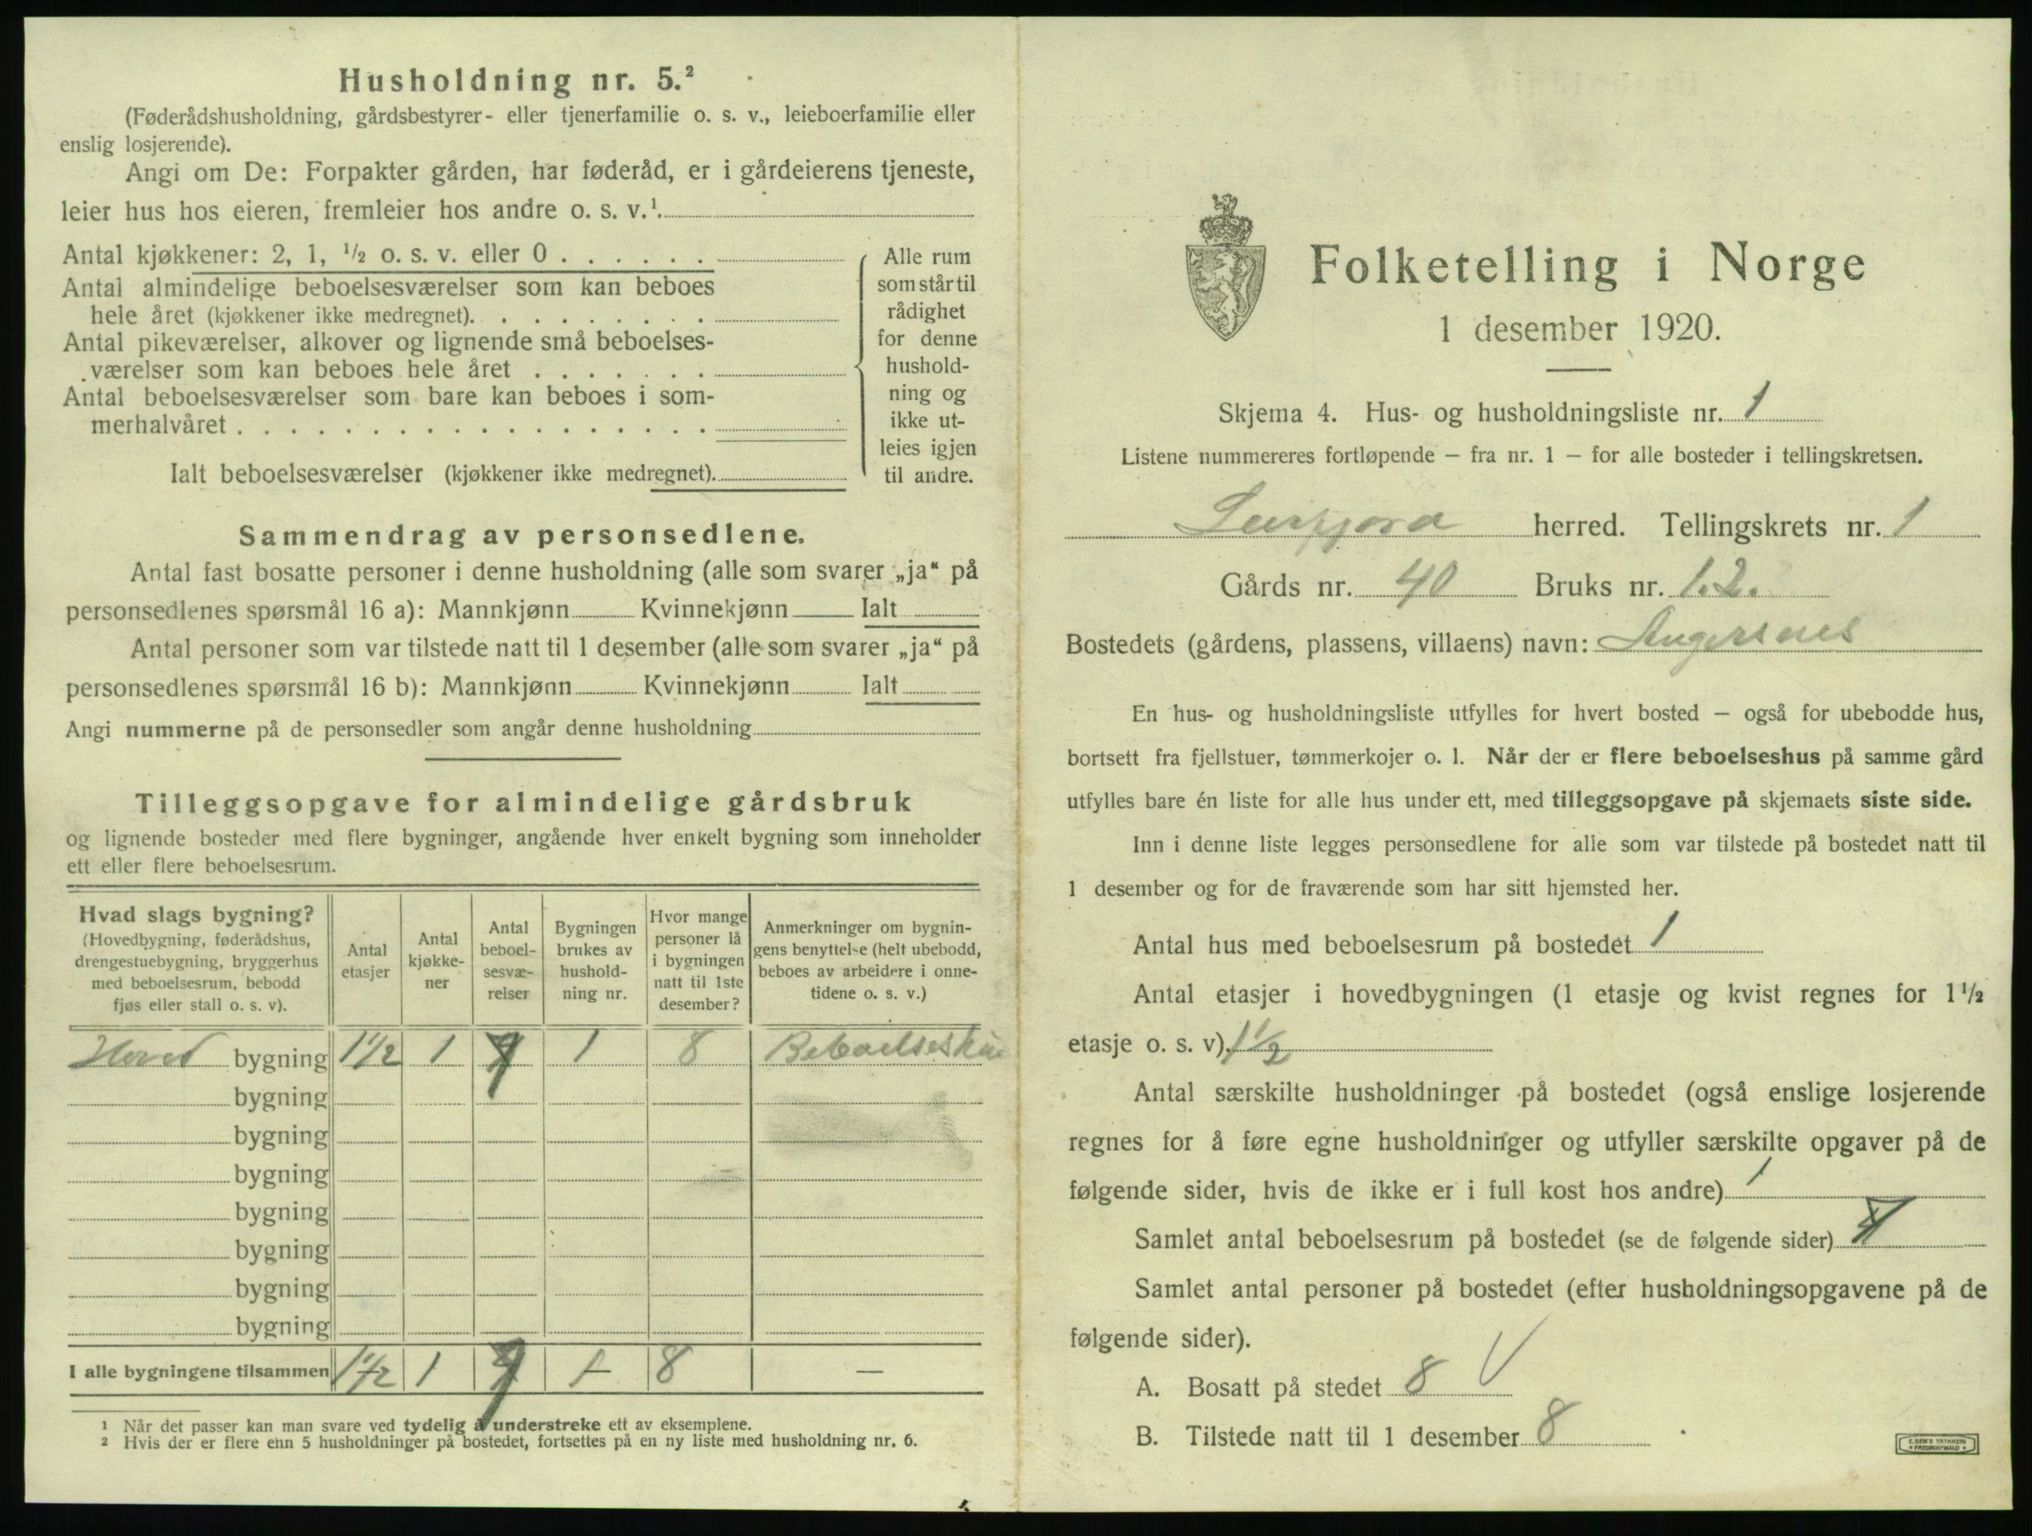 Husholdning nr. 5.²
(Føderådshusholdning, gårdsbestyrer- eller tjenerfamilie o. s. v., leieboerfamilie eller
enslig losjerende).
Angi om De: Forpakter gården, har føderåd, er i gårdeierens tjeneste,
leier hus hos eieren, fremleier hos andre o. s. v.¹
Antal kjøkkener: 2, 1, ½ o. s. v. eller 0
Antal almindelige beboelsesværelser som kan beboes
hele året (kjøkkener ikke medregnet).
Antal pikeværelser, alkover og lignende små beboelses-
værelser som kan beboes hele året
Antal beboelsesværelser som bare kan beboes i som-
merhalvåret
Ialt beboelsesværelser (kjøkkener ikke medregnet).
Alle rum
som står til
rådighet
for denne
hushold-
ning og
ikke ut-
leies igjen
til andre.
Sammendrag av personsedlene.
Antal fast bosatte personer i denne husholdning (alle som svarer „ja“ på
personsedlenes spørsmål 16 a): Mannkjønn Kvinnekjønn Ialt
Antal personer som var tilstede natt til 1 desember (alle som svarer „ja“ på
personsedlenes spørsmål 16 b): Mannkjønn Kvinnekjønn Ialt
Angi nummerne på de personsedler som angår denne husholdning
Tilleggsopgave for almindelige gårdsbruk
og lignende bosteder med flere bygninger, angående hver enkelt bygning som inneholder
ett eller flere beboelsesrum.
Hvad slags bygning?
(Hovedbygning, føderådshus,
drengestuebygning, bryggerhus
med beboelsesrum, bebodd
fjøs eller stall o. s. v).
Antal
etasjer
Antal
kjøkke-
ner
Antal
beboel-
sesvæ-
relser
Bygningen
brukes av
hushold-
ning nr.
Hvor mange
personer lå
i bygningen
natt til 1ste
desember?
Anmerkninger om bygnin-
gens benyttelse (helt ubebodd,
beboes av arbeidere i onne-
tidene o. s. v.)
Hoved bygning 1½ 1 7 1 8
bygning
bygning
bygning
bygning
bygning
bygning
bygning
I alle bygningene tilsammen 1½ 1 7 1 8 —
¹ Når det passer kan man svare ved tydelig å understreke ett av eksemplene.
² Hvis der er flere enn 5 husholdninger på bostedet, fortsettes på en ny liste med husholdning nr. 6.
Folketelling i Norge
1 desember 1920.
Skjema 4. Hus- og husholdningsliste nr. 1
Listene nummereres fortløpende – fra nr. 1 – for alle bosteder i tellingskretsen.
Leirfjord herred. Tellingskrets nr. 1
Gårds nr. 40 Bruks nr. 1.2.
Bostedets (gårdens, plassens, villaens) navn: Angersnes
En hus- og husholdningsliste utfylles for hvert bosted – også for ubebodde hus,
bortsett fra fjellstuer, tømmerkojer o. l. Når der er flere beboelseshus på samme gård
utfylles bare én liste for alle hus under ett, med tilleggsopgave på skjemaets siste side.
Inn i denne liste legges personsedlene for alle som var tilstede på bostedet natt til
1 desember og for de fraværende som har sitt hjemsted her.
Antal hus med beboelsesrum på bostedet 1
Antal etasjer i hovedbygningen (1 etasje og kvist regnes for 1½
etasje o. s. v). 1½
Antal særskilte husholdninger på bostedet (også enslige losjerende
regnes for å føre egne husholdninger og utfyller særskilte opgaver på de
følgende sider, hvis de ikke er i full kost hos andre) 1
Samlet antal beboelsesrum på bostedet (se de følgende sider)
Samlet antal personer på bostedet (efter husholdningsopgavene på de
følgende sider).
A. Bosatt på stedet 8
B. Tilstede natt til 1 desember 8